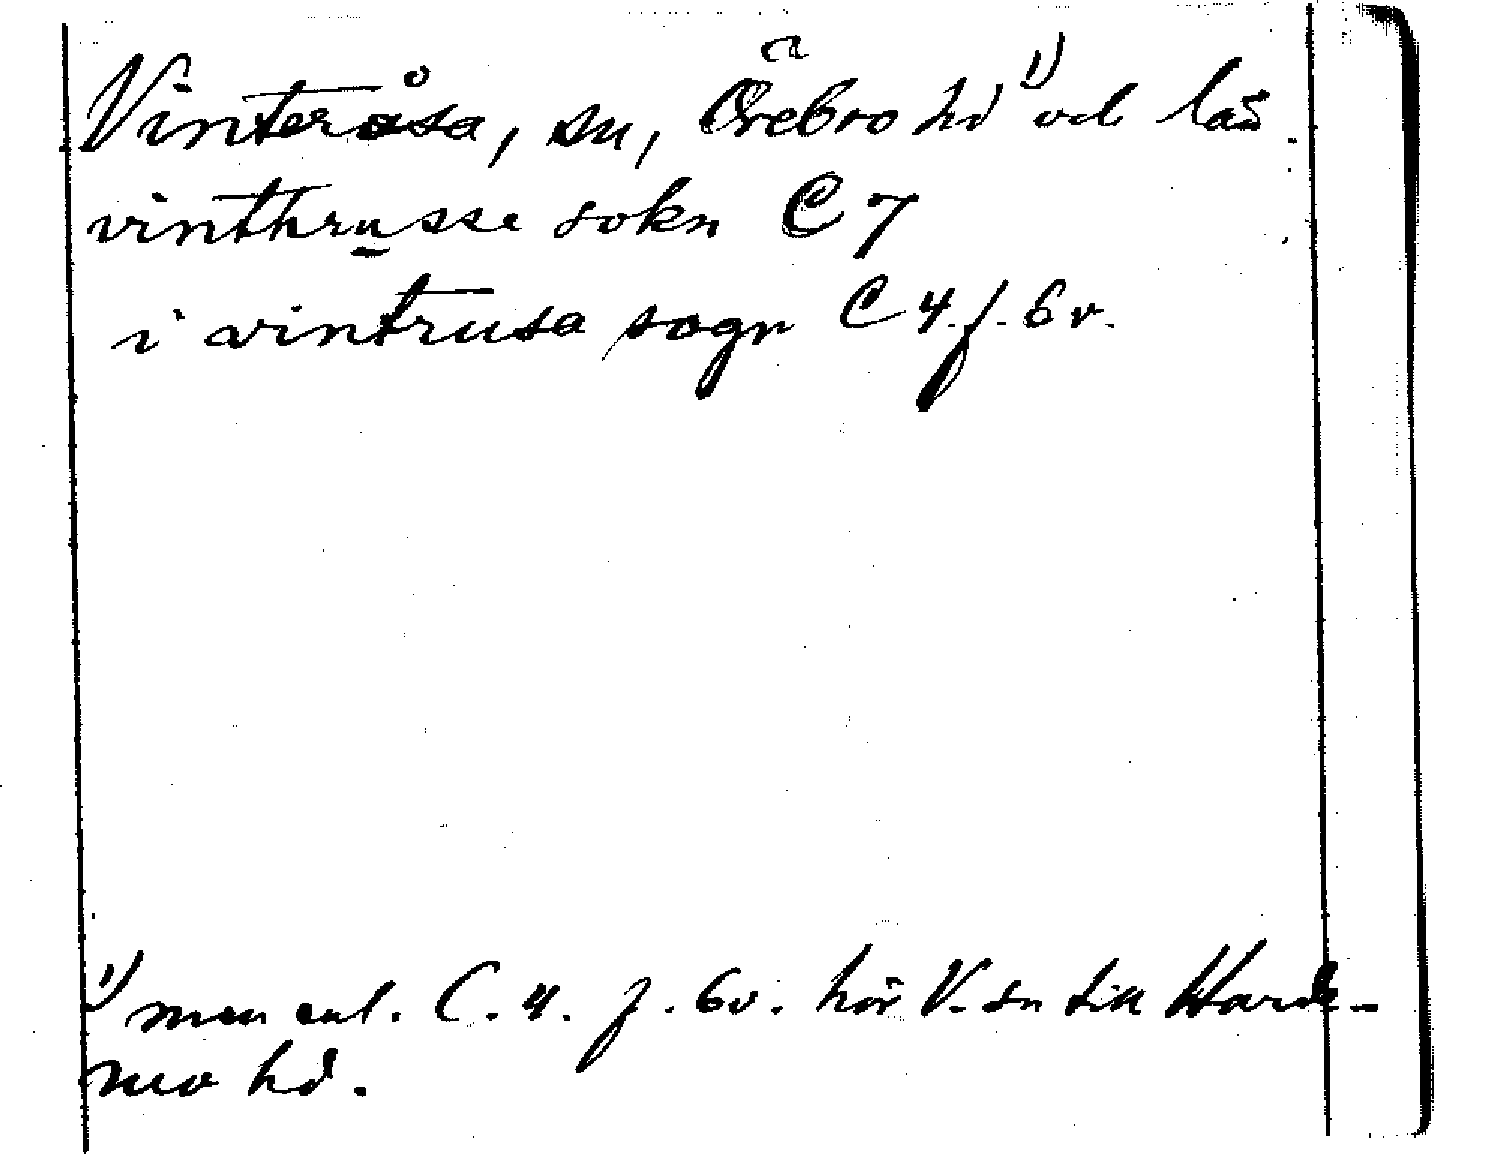 Vinteråsa, sn, Örebro hd ¹) och län
vinthrusse sokn C 7
i vintrusa sogn C 4. f. 6 v.
¹) men enl. C. 4. f. 6v. hör V. sn till Harde-
mo hd.